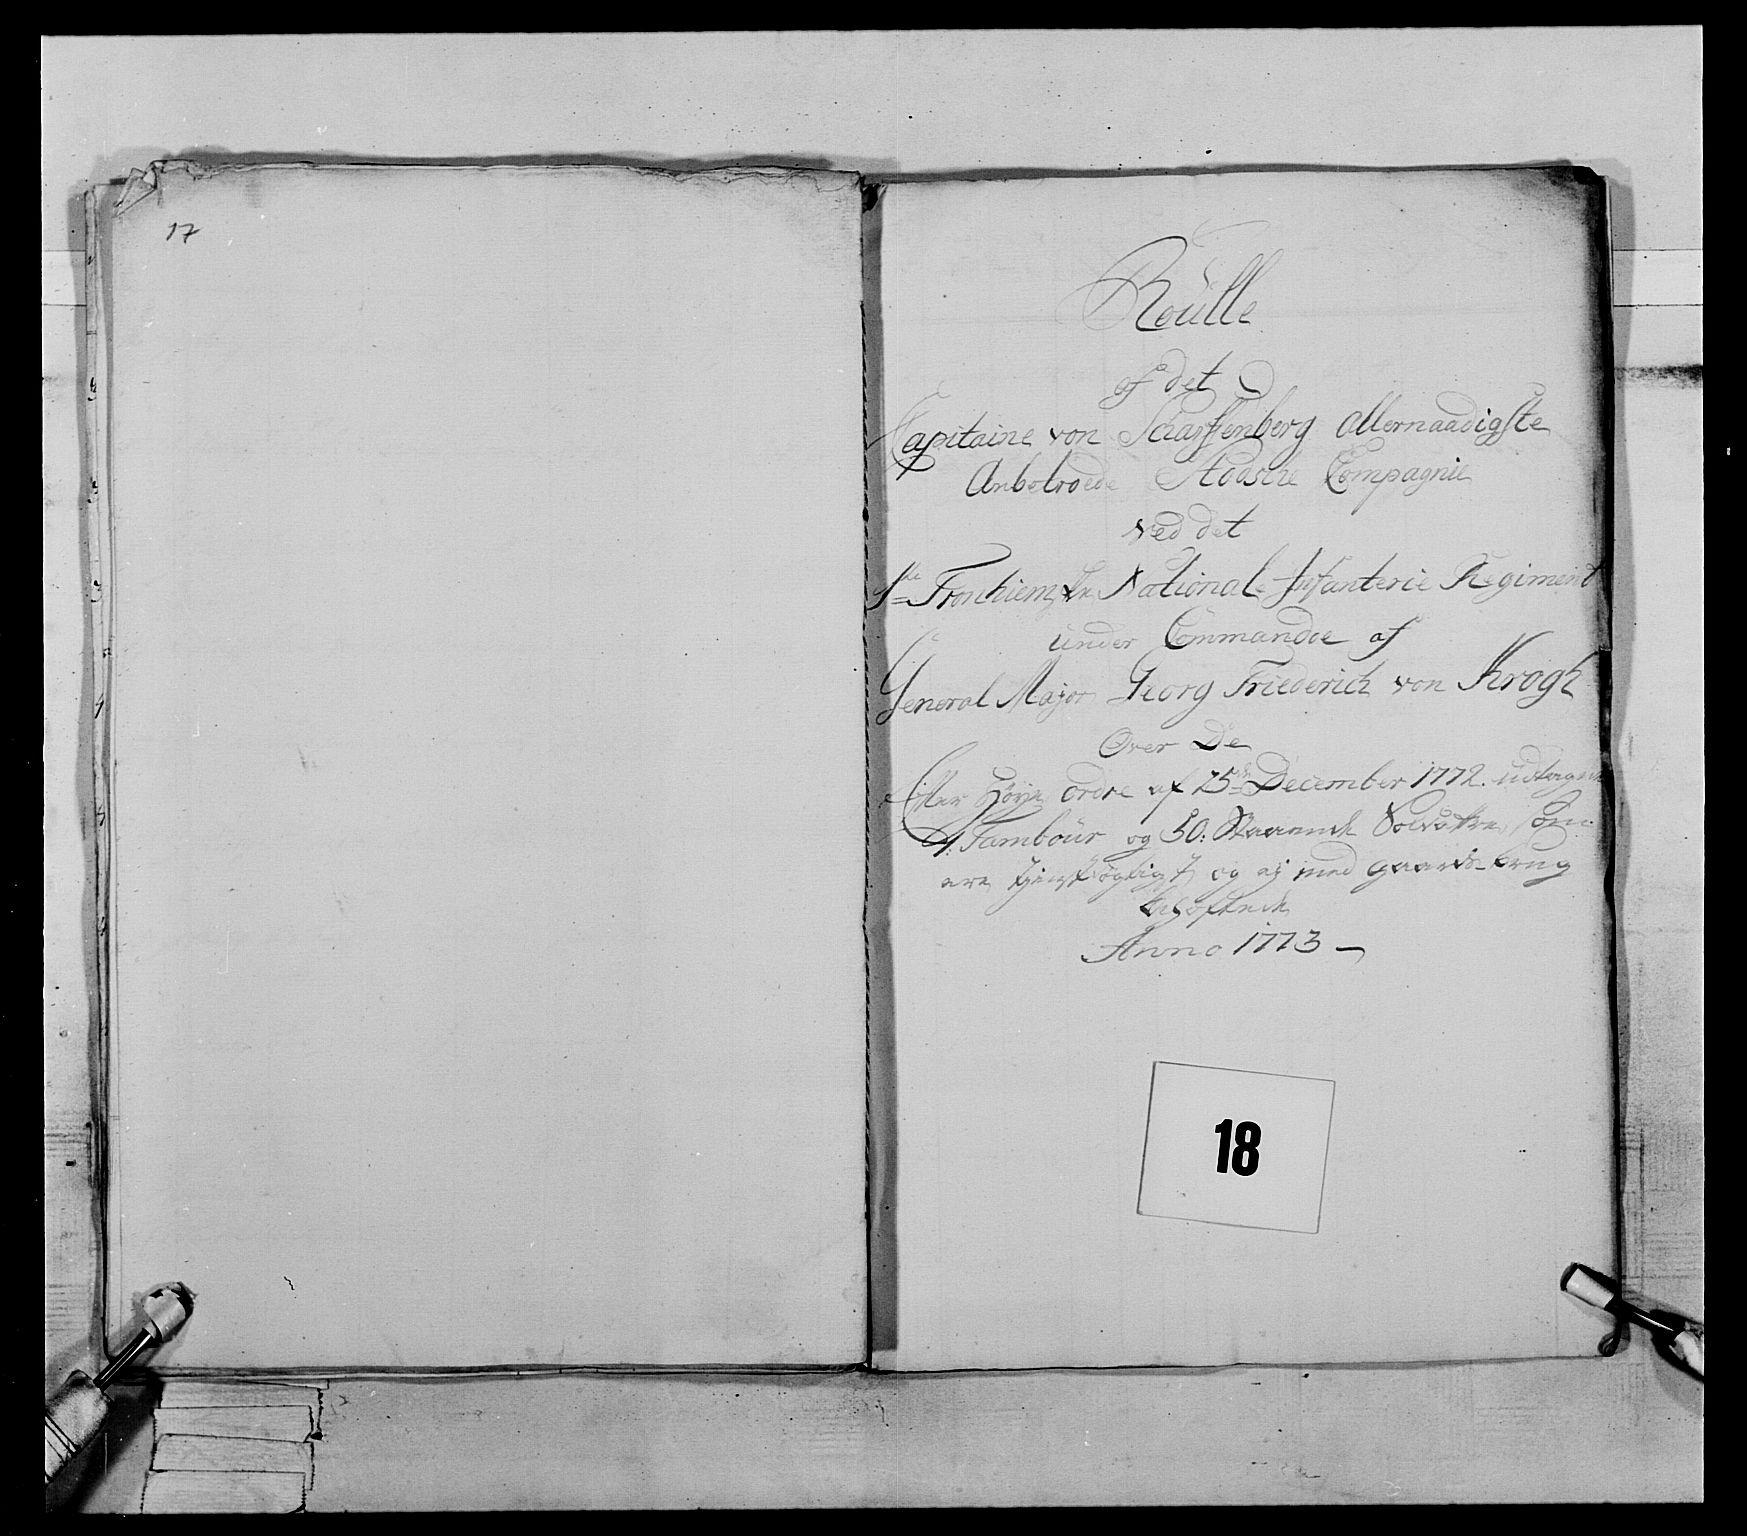 17
Roülle
af det
Capitaine von Scharffenberg Allernaadigste
Anbetroede Stodsche Compagnie
ved det
1ste Tronhiemske National-Infanterie Regiment
under Commandoe af
General Major Georg Friederich von Krogh
Over De
Efter Høye ordre af 25de December 1772. udtagne
1: Tambour og 50: Staaende Soldatter, som
ere og ej med gaards-brug
behæftede
Anno 1773 -
18